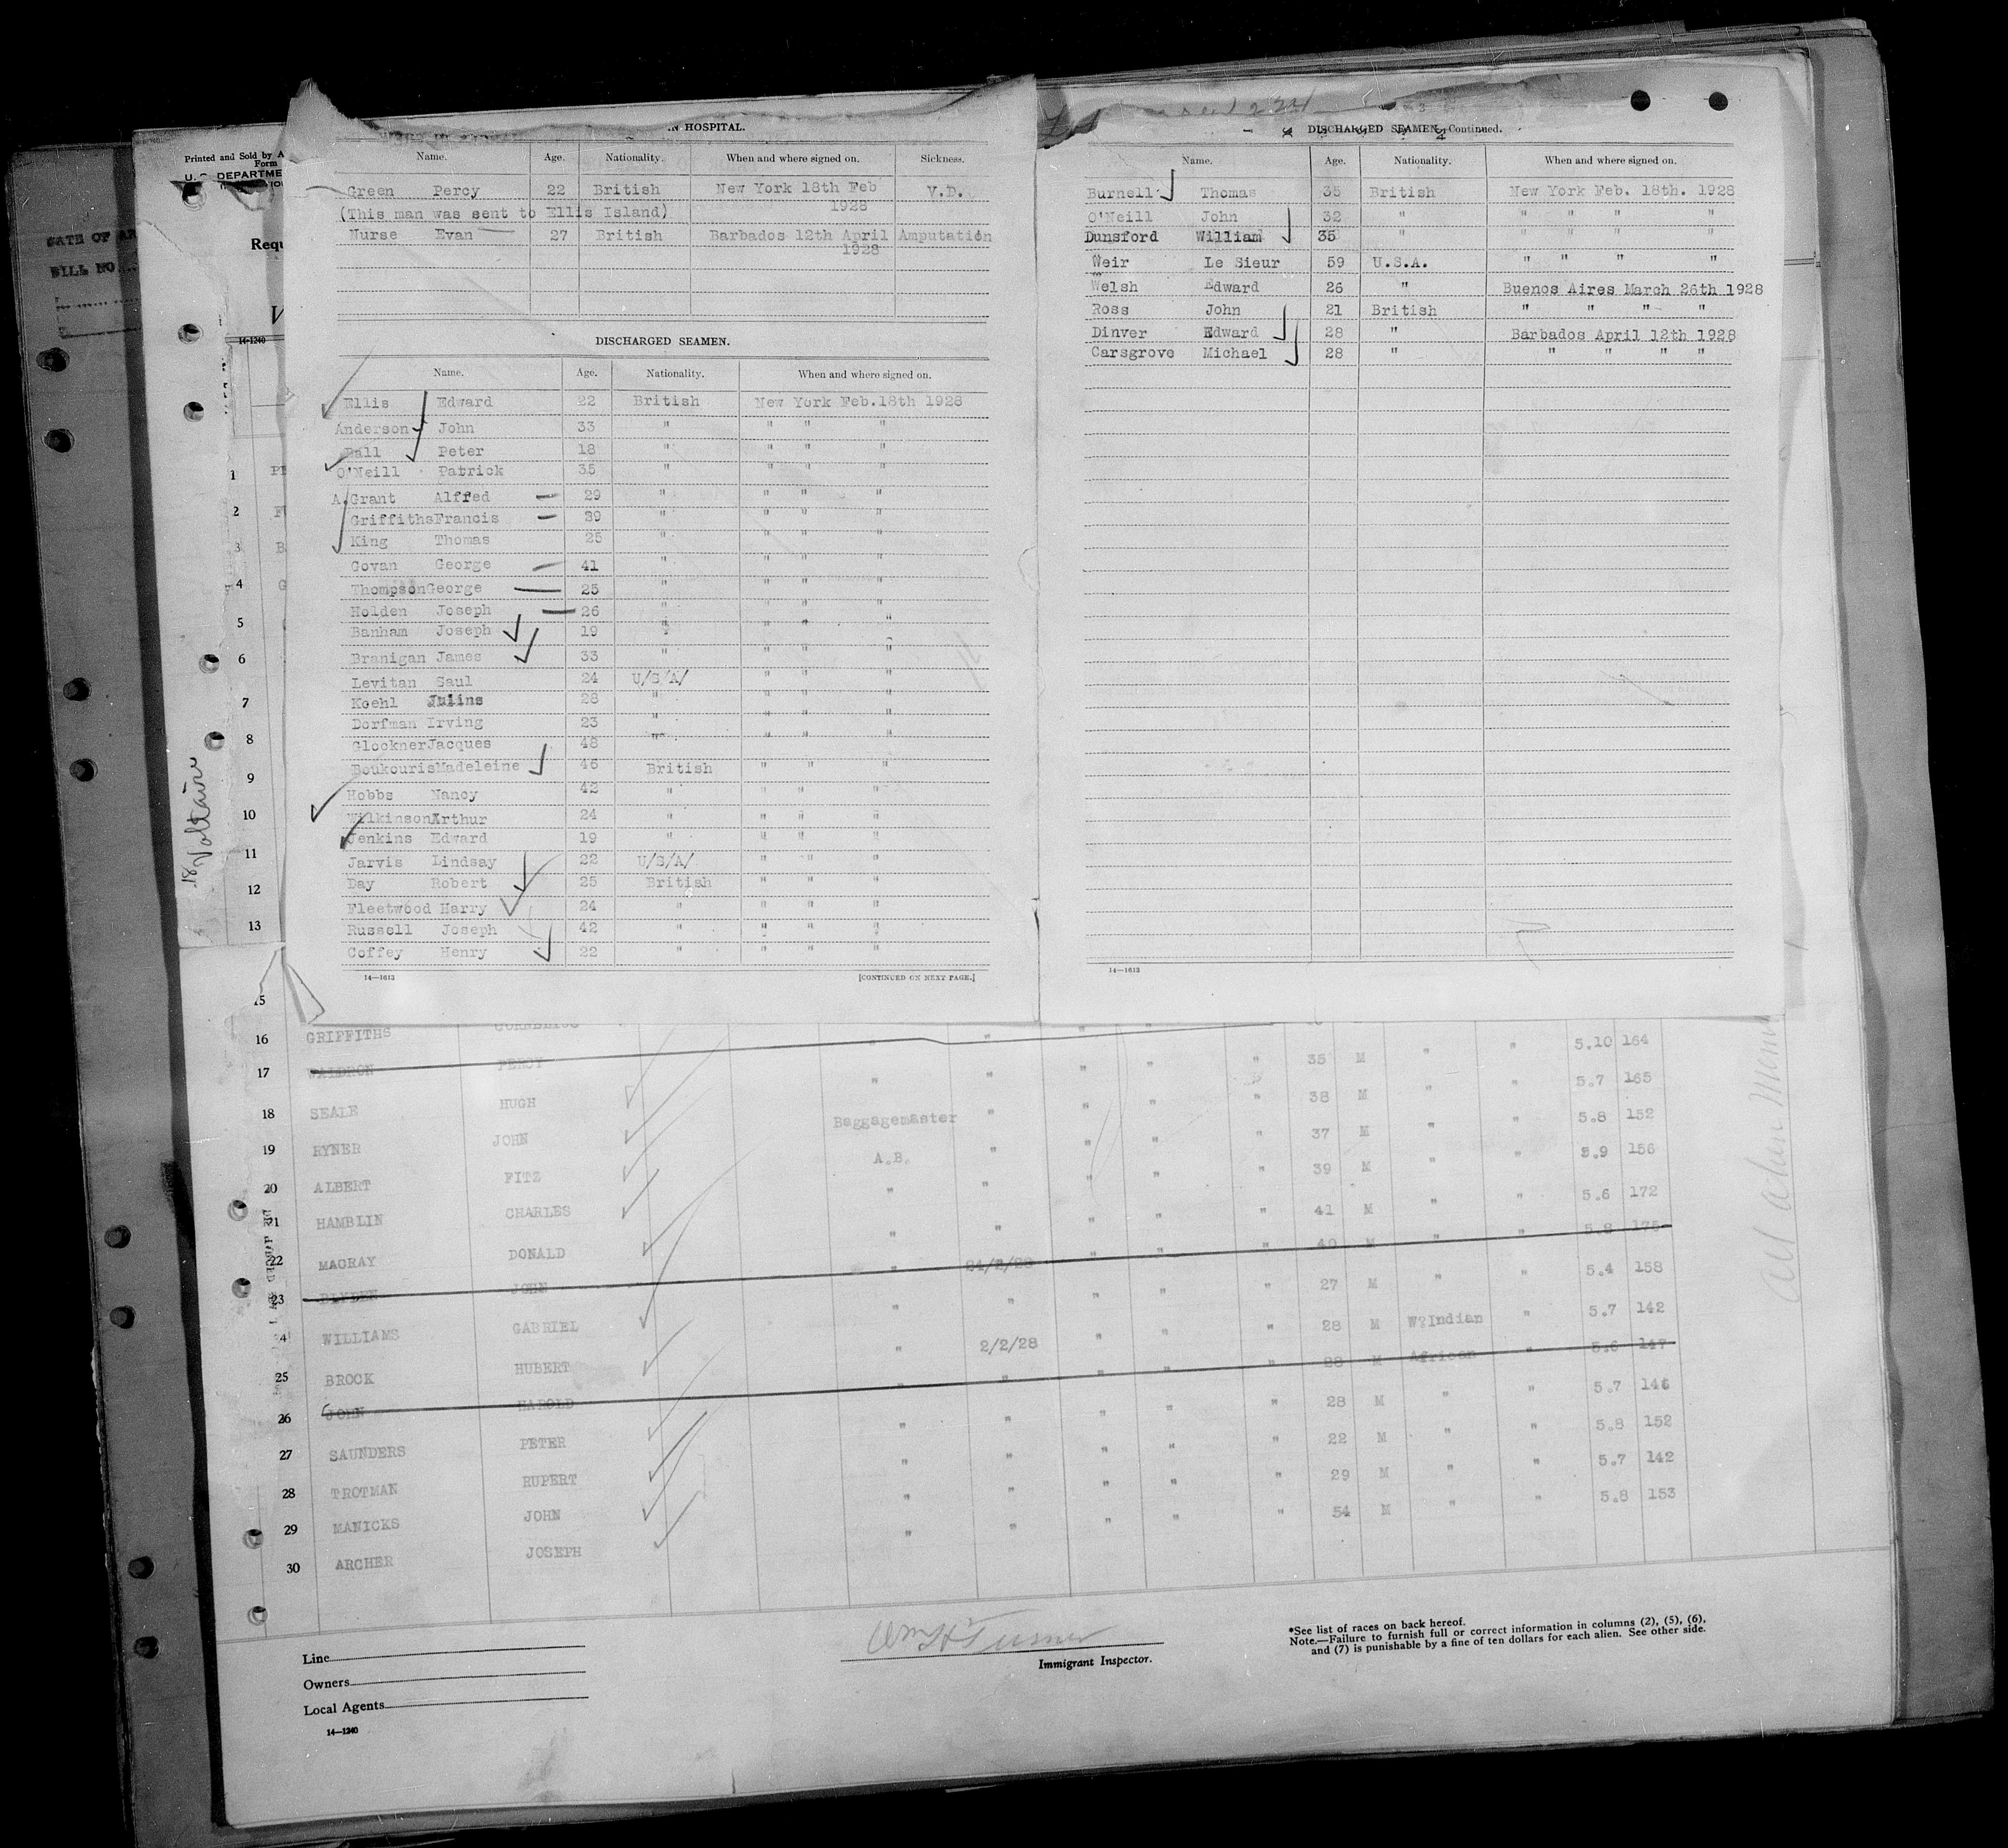 IN HOSPITAL.
Name. Age. Nationality. When and where signed on. Sickness.
Green Percy 22 British New York 18th Feb V.D.
(This man was sent to Ellis Island) 1928
Nurse Evan 27 British Barbados 12th April Amputation
1928
DISCHARGED SEAMEN.
Name. Age. Nationality. When and where signed on.
Ellis Edward 22 British New York Feb.18th 1928
Anderson John 33 " " " "
Ball Peter 18 " " " "
O'Neill Patrick 35 " " " "
A.Grant Alfred 29 " " " "
Griffiths Francis 39 " " " "
King Thomas 25 " " " "
Govan George 41 " " " "
Thompson George 25 " " " "
Holden Joseph 26 " " " "
Banham Joseph 19 " " " "
Branigan James 33 " " " "
Levitan Saul 24 U/S/A/ " " "
Koehl Julins 28 " " " "
Dorfman Irving 23 " " " "
Glockner Jacques 48 " " " "
Boukouris Madeleine 46 British " " "
Hobbs Nancy 42 " " " "
Wilkinson Arthur 24 " " " "
Jenkins Edward 19 " " " "
Jarvis Lindsay 22 U/S/A/ " " "
Day Robert 25 British " " "
Fleetwood Harry 24 " " " "
Russell Joseph 42 " " " "
Coffey Henry 22 " " " "
14—1613 [CONTINUED ON NEXT PAGE.]
DISCHARGED SEAMEN, Continued.
Name. Age. Nationality. When and where signed on.
Burnell Thomas 35 British New York Feb. 18th. 1928
O'Neill John 32 " " " " "
Dunsford William 35 " " " " "
Weir Le Sieur 59 U.S.A. " " " "
Welsh Edward 26 " Buenos Aires March 26th 1928
Ross John 21 British " " " "
Dinver Edward 28 " Barbados April 12th 1928
Carsgrove Michael 28 " " " " "
14—1613
Printed and Sold by A
Form
U. S. DEPARTME
Requ
DATE OF AR
BILL NO
14-1240
1
2
3
4
5
6
7
8
9
10
11
12
13
Voltaire
15
16 GRIFFITHS CORNELIUS " "
17 WALDRON PERCY " " " " " 35 M " " 5.10 164
18 SEALE HUGH Baggagemaster " " " " 38 M " " 5.7 165
19 RYNER JOHN A.B. " " " " 37 M " " 5.8 152
20 ALBERT FITZ " " " " " 39 M " " 5.9 156
21 HAMBLIN CHARLES " " " " " 41 M " " 5.6 172
22 MACRAY DONALD " 24/2/28 " " " 40 M " " 5.8 175
23 BLYDEN JOHN " " " " " 27 M " " 5.4 158
24 WILLIAMS GABRIEL " 2/2/28 " " " 28 M W?Indian " 5.7 142
25 BROCK HUBERT " " " " " 28 M African " 5.6 147
26 JOHN HAROLD " " " " " 28 M " " 5.7 146
27 SAUNDERS PETER " " " " " 22 M " " 5.8 152
28 TROTMAN RUPERT " " " " " 29 M " " 5.7 142
29 MANICKS JOHN " " " " " 54 M " " 5.8 153
30 ARCHER JOSEPH
Line
Owners
Local Agents
14—1240
Wm H Turner
Immigrant Inspector.
*See list of races on back hereof.
Note.—Failure to furnish full or correct information in columns (2), (5), (6),
and (7) is punishable by a fine of ten dollars for each alien. See other side.